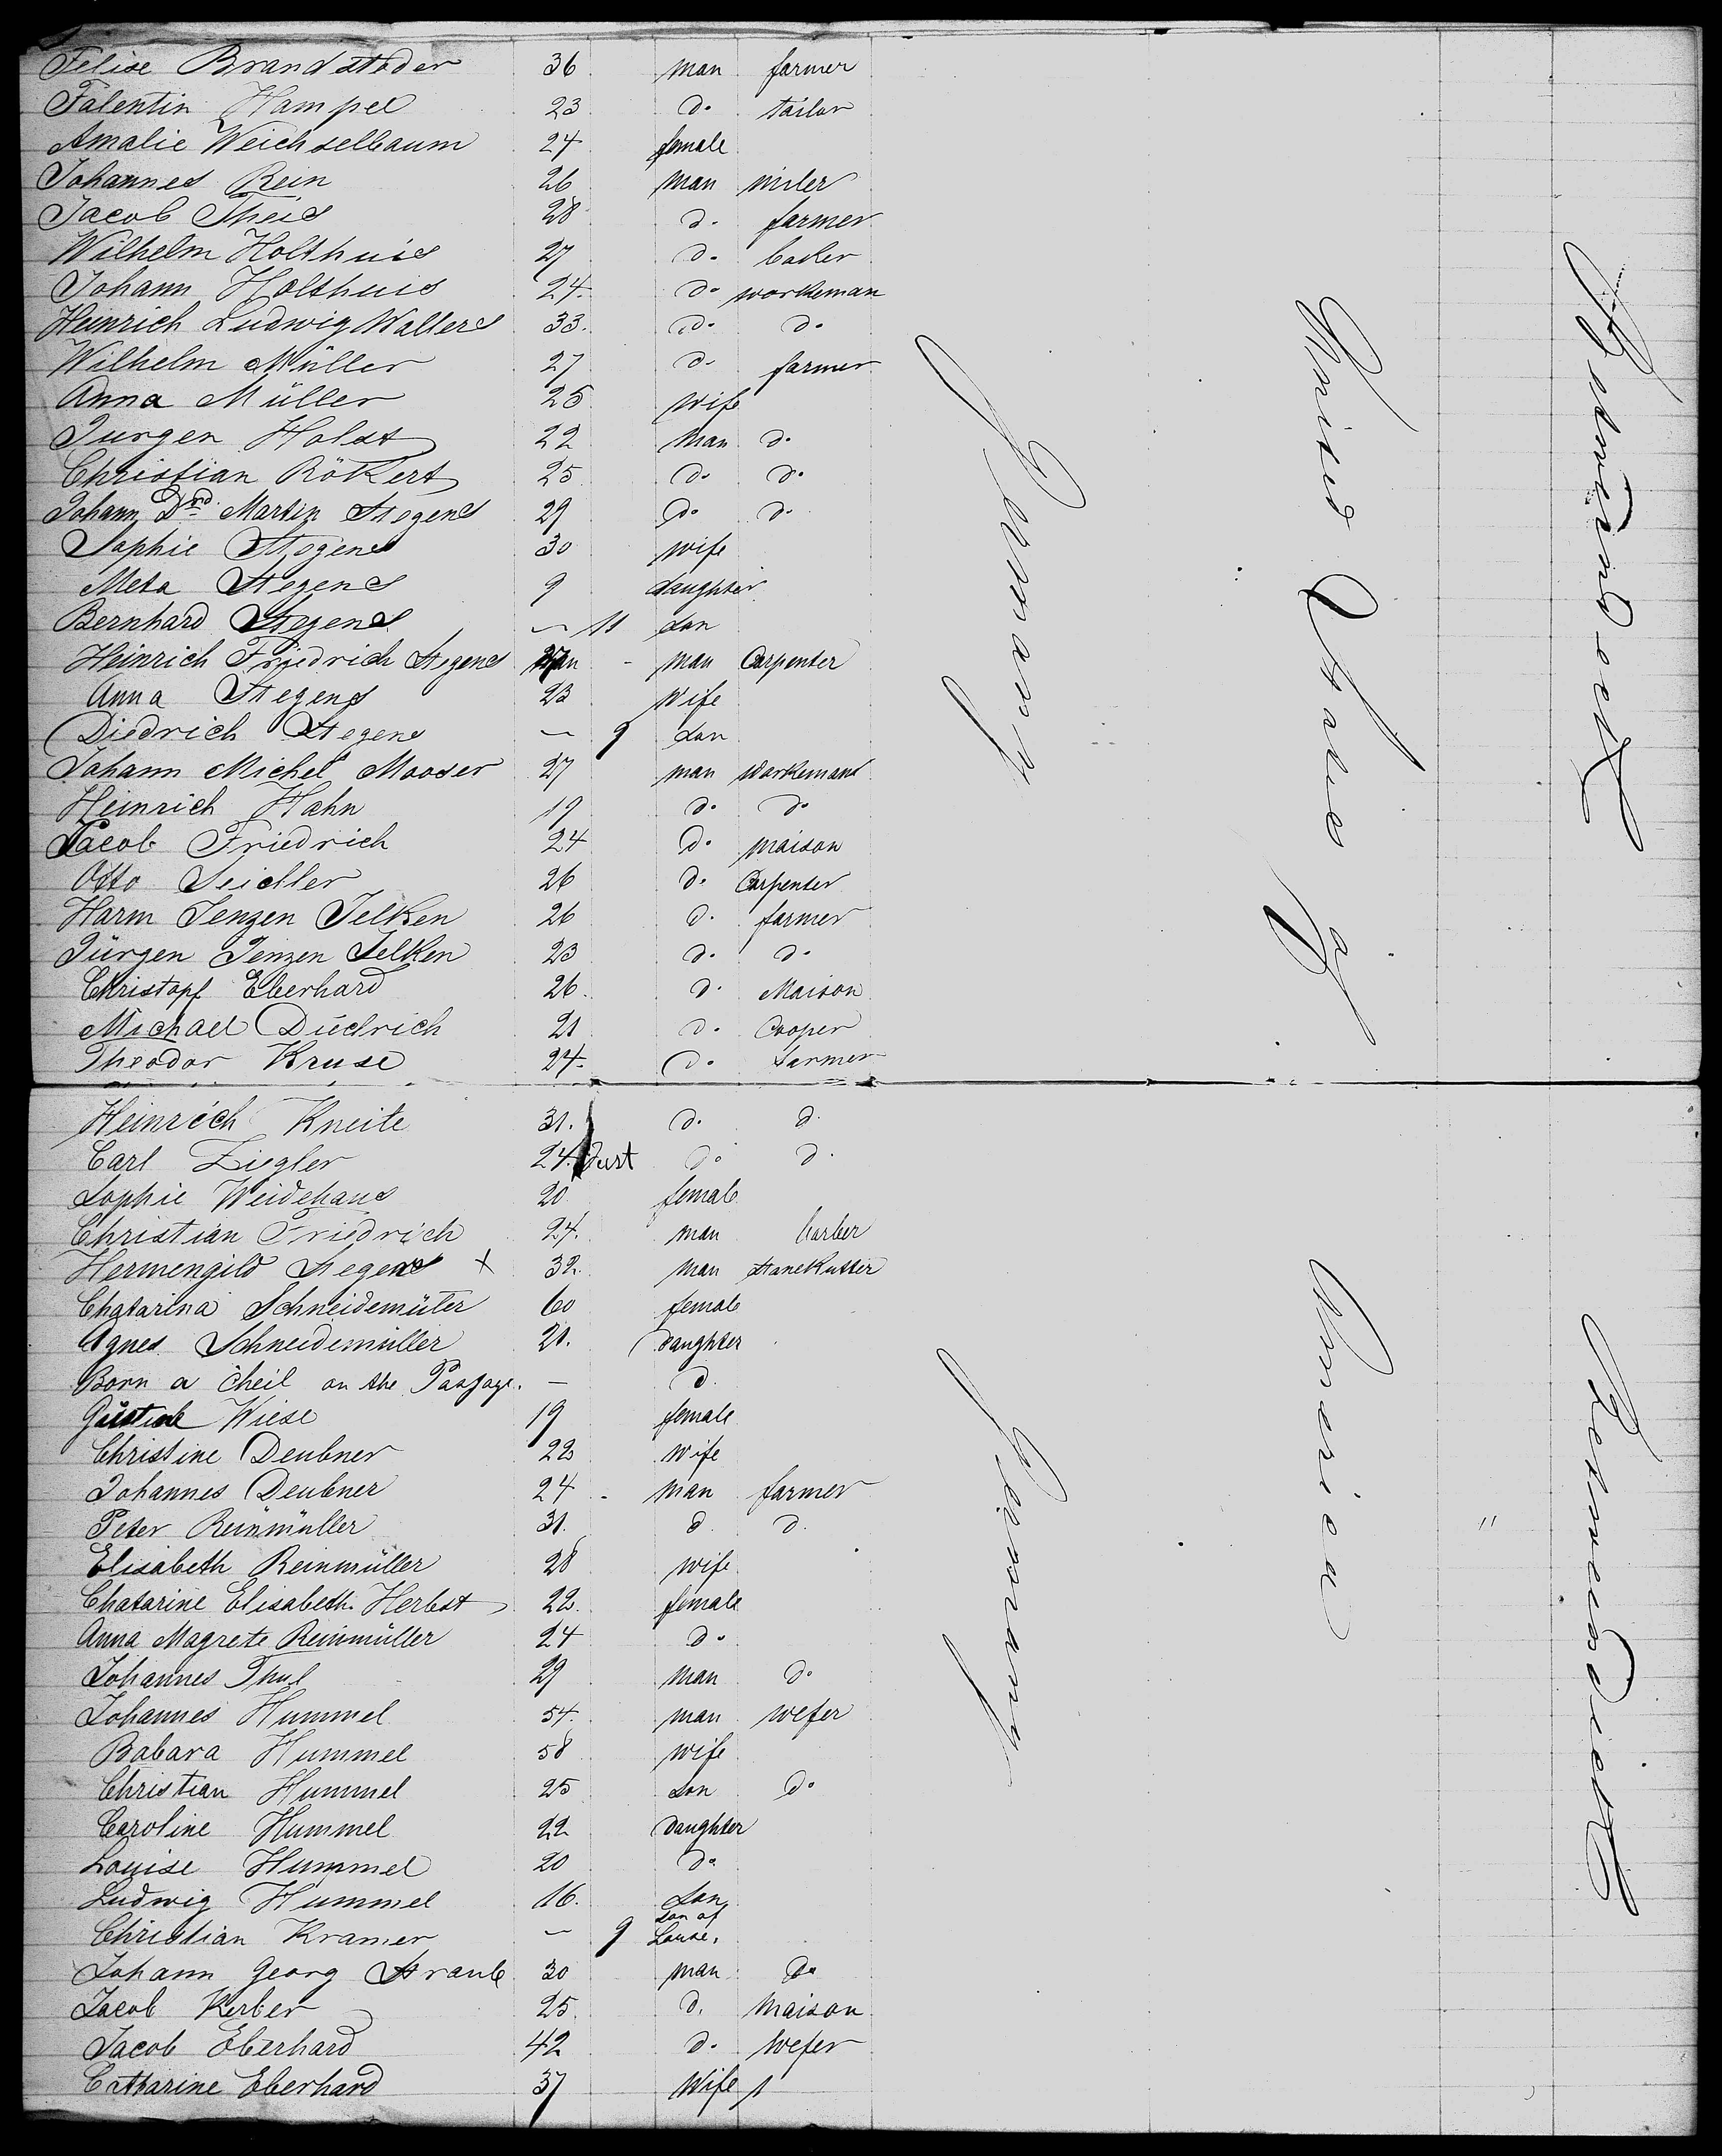 Felise Brandstoder 36 man farmer
Falentin Hampel 23 do tailor
Amalie Weichselbaum 24 female
Johannes Rein 26 man miler
Jacob Theis 28 do farmer
Wilhelm Holthuis 27 do baker
Johann Holthuis 24. do workeman
Heinrich Ludwig Walters 33. do do
Wilhelm Müller 27 do farmer
Anna Müller 25 wife
Jurgen Holst 22 man do
Christian Rökert 25 do do
Johann Drd Martin Stegens 29 do do
Sophie Stegens 30 wife
Meta Stegens 9 daughter
Bernhard Stegens — 11 son
Heinrich Friedrich Stegens man Carpenter
Anna Stegens 23 Wife
Diedrich Stegens — 9 son
Johann Michel Mooser 27 man workemans
Heinrich Hahn 19 do do
Jacob Friedrich 24 do maison
Otto Seidler 26 do Carpenter
Harm Jenzen Jelken 26 do farmer
Jürgen Jenzen Jelken 23 do do
Christopf Eberhard 26. do Maison
Michael Diedrich 21 do Cooper
Theodor Kruse 24. do farmer
Heinrich Kneite 31. do do
Carl Ziegler 24. do do
Sophie Weidehaus 20 female
Christian Friedrich 24. man barber
Hermengild Stegens X 32. man stanekutter
Chatarina Schneidemüler 60 female
Agnes Schneidemüller 21. daughter
Born a cheil on the Passage. — do
Wiese 19 female
Christine Deubner 22 wife
Johannes Deubner 24 man farmer
Peter Reinmüller 31. do do
Elisabeth Reinmüller 28 wife
Chatarine Elisabeth Herbst 22. female
Anna Magrete Reinmüller 24 do
Johannes Thul 29 man do
Johannes Hummel 54. man wefer
Babara Hummel 58 wife
Christian Hummel 25 son do
Caroline Hummel 22 daughter
Louise Hummel 20 do
Ludwig Hummel 16. son
Christian Kramer — 9 son of Louise.
Johann Georg Straub 30 man do
Jacob Kerber 25. do Maison
Jacob Eberhard 42 do wefer
Catharine Eberhard 37 Wife
Germany
United States of
Between deck
Germany
America
"
Between deck